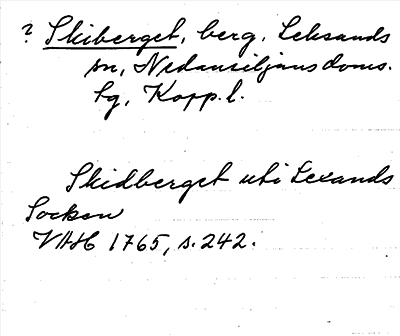 ? Skiberget, berg. Leksands
sn, Nedansiljans doms.
sg, Kopp. l.
Skidberget uti Lexands
Socken
VAH 1765, s. 242.